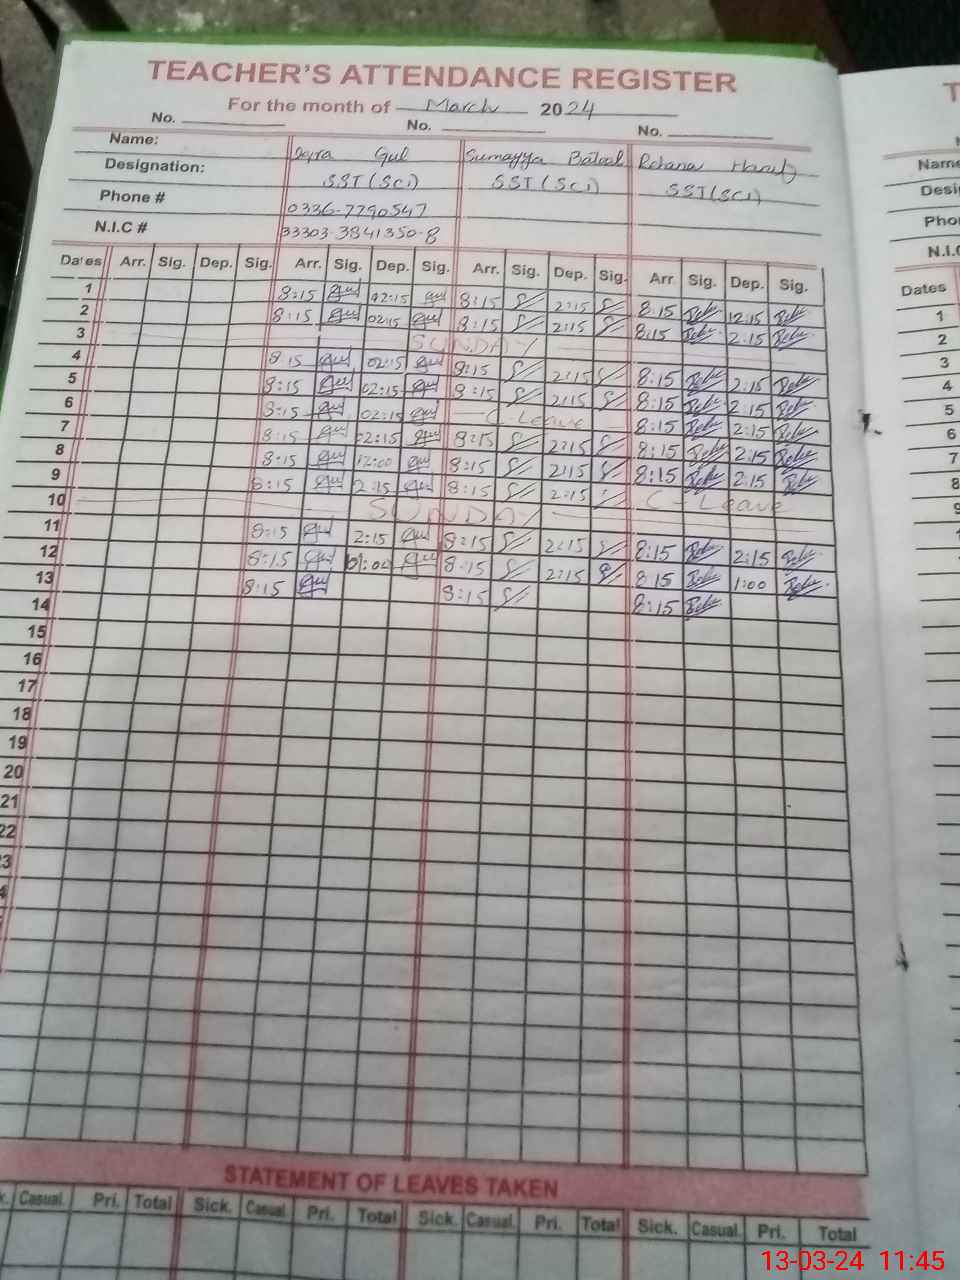 TEACHER'S ATTENDANCE REGISTER
For the month of March 2024
No. No. No.
Name: Iqra Gul Sumayya Batool Rehana Hanif
Designation: SST(Sci) SST(Sci) SST(Sci)
Phone # 0336-7790547
N.I.C # 33303-3841350-8
Dates Arr. Sig. Dep. Sig. Arr. Sig. Dep. Sig. Arr. Sig. Dep. Sig. Arr. Sig. Dep. Sig.
1 8:15 gul 12:15 gul 8:15 2:15 8:15 12:15
2 8:15 gul 02:15 gul 8:15 2:15 8:15 2:15
3 SUNDAY
4 8:15 gul 02:15 gul 8:15 2:15 8:15 2:15
5 8:15 gul 02:15 gul 8:15 2:15 8:15 2:15
6 8:15 gul 02:15 gul C-Leave 8:15 2:15
7 8:15 gul 02:15 gul 8:15 2:15 8:15 2:15
8 8:15 gul 12:00 gul 8:15 2:15 8:15 2:15
9 8:15 gul 2:15 gul 8:15 2:15 C-Leave
10 SUNDAY
11 8:15 gul 2:15 gul 8:15 2:15 8:15 2:15
12 8:15 gul 01:00 gul 8:15 2:15 8:15 1:00
13 8:15 gul 8:15 8:15
14
15
16
17
18
19
20
21
22
STATEMENT OF LEAVES TAKEN
Casual. Pri. Total Sick. Casual. Pri. Total Sick. Casual. Pri. Total Sick. Casual. Pri. Total
Dates
1
2
3
4
5
6
7
8
13-03-24 11:45